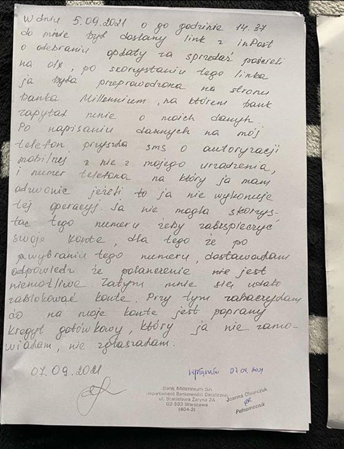 W dniu 5.09.2021 o go godzinie 14.37
do mnie był dosłany link z inPost
o odebraniu opłaty za sprzedaż pościeli
na olx, po skorystaniu tego linka
ja była przeprowodzona na stronu
banka Millennium, na którem bank
zapytał mnie o moich danych.
Po napisaniu dannych na mój
telefon przyszła sms o autoryzacji
mobilnej z nie z mojego urządzenia,
i numer telefona na który ja mam
odzwonić jeżeli to ja nie wykonuję
tej operacyj. Ja nie mogła skorys-
tać tego numeru żeby zabespieczyć
swoje konto, dla tego że po
wybraniu tego numeru, dostawałam
odpowiedź że połączenie nie jest
niemożliwe. Zatym mnie się udało
zablokować konto. Przy tym
co na moje konto jest poprany
kredyt gotówkowy, który ja nie zamo-
wiałam, nie zgłaszałam.
07.09.2021
07.09.2021
Bank Millennium SA
Departament Bankowości Detalicznej
ul. Stanisława Żaryna 2A
02-593 Warszawa